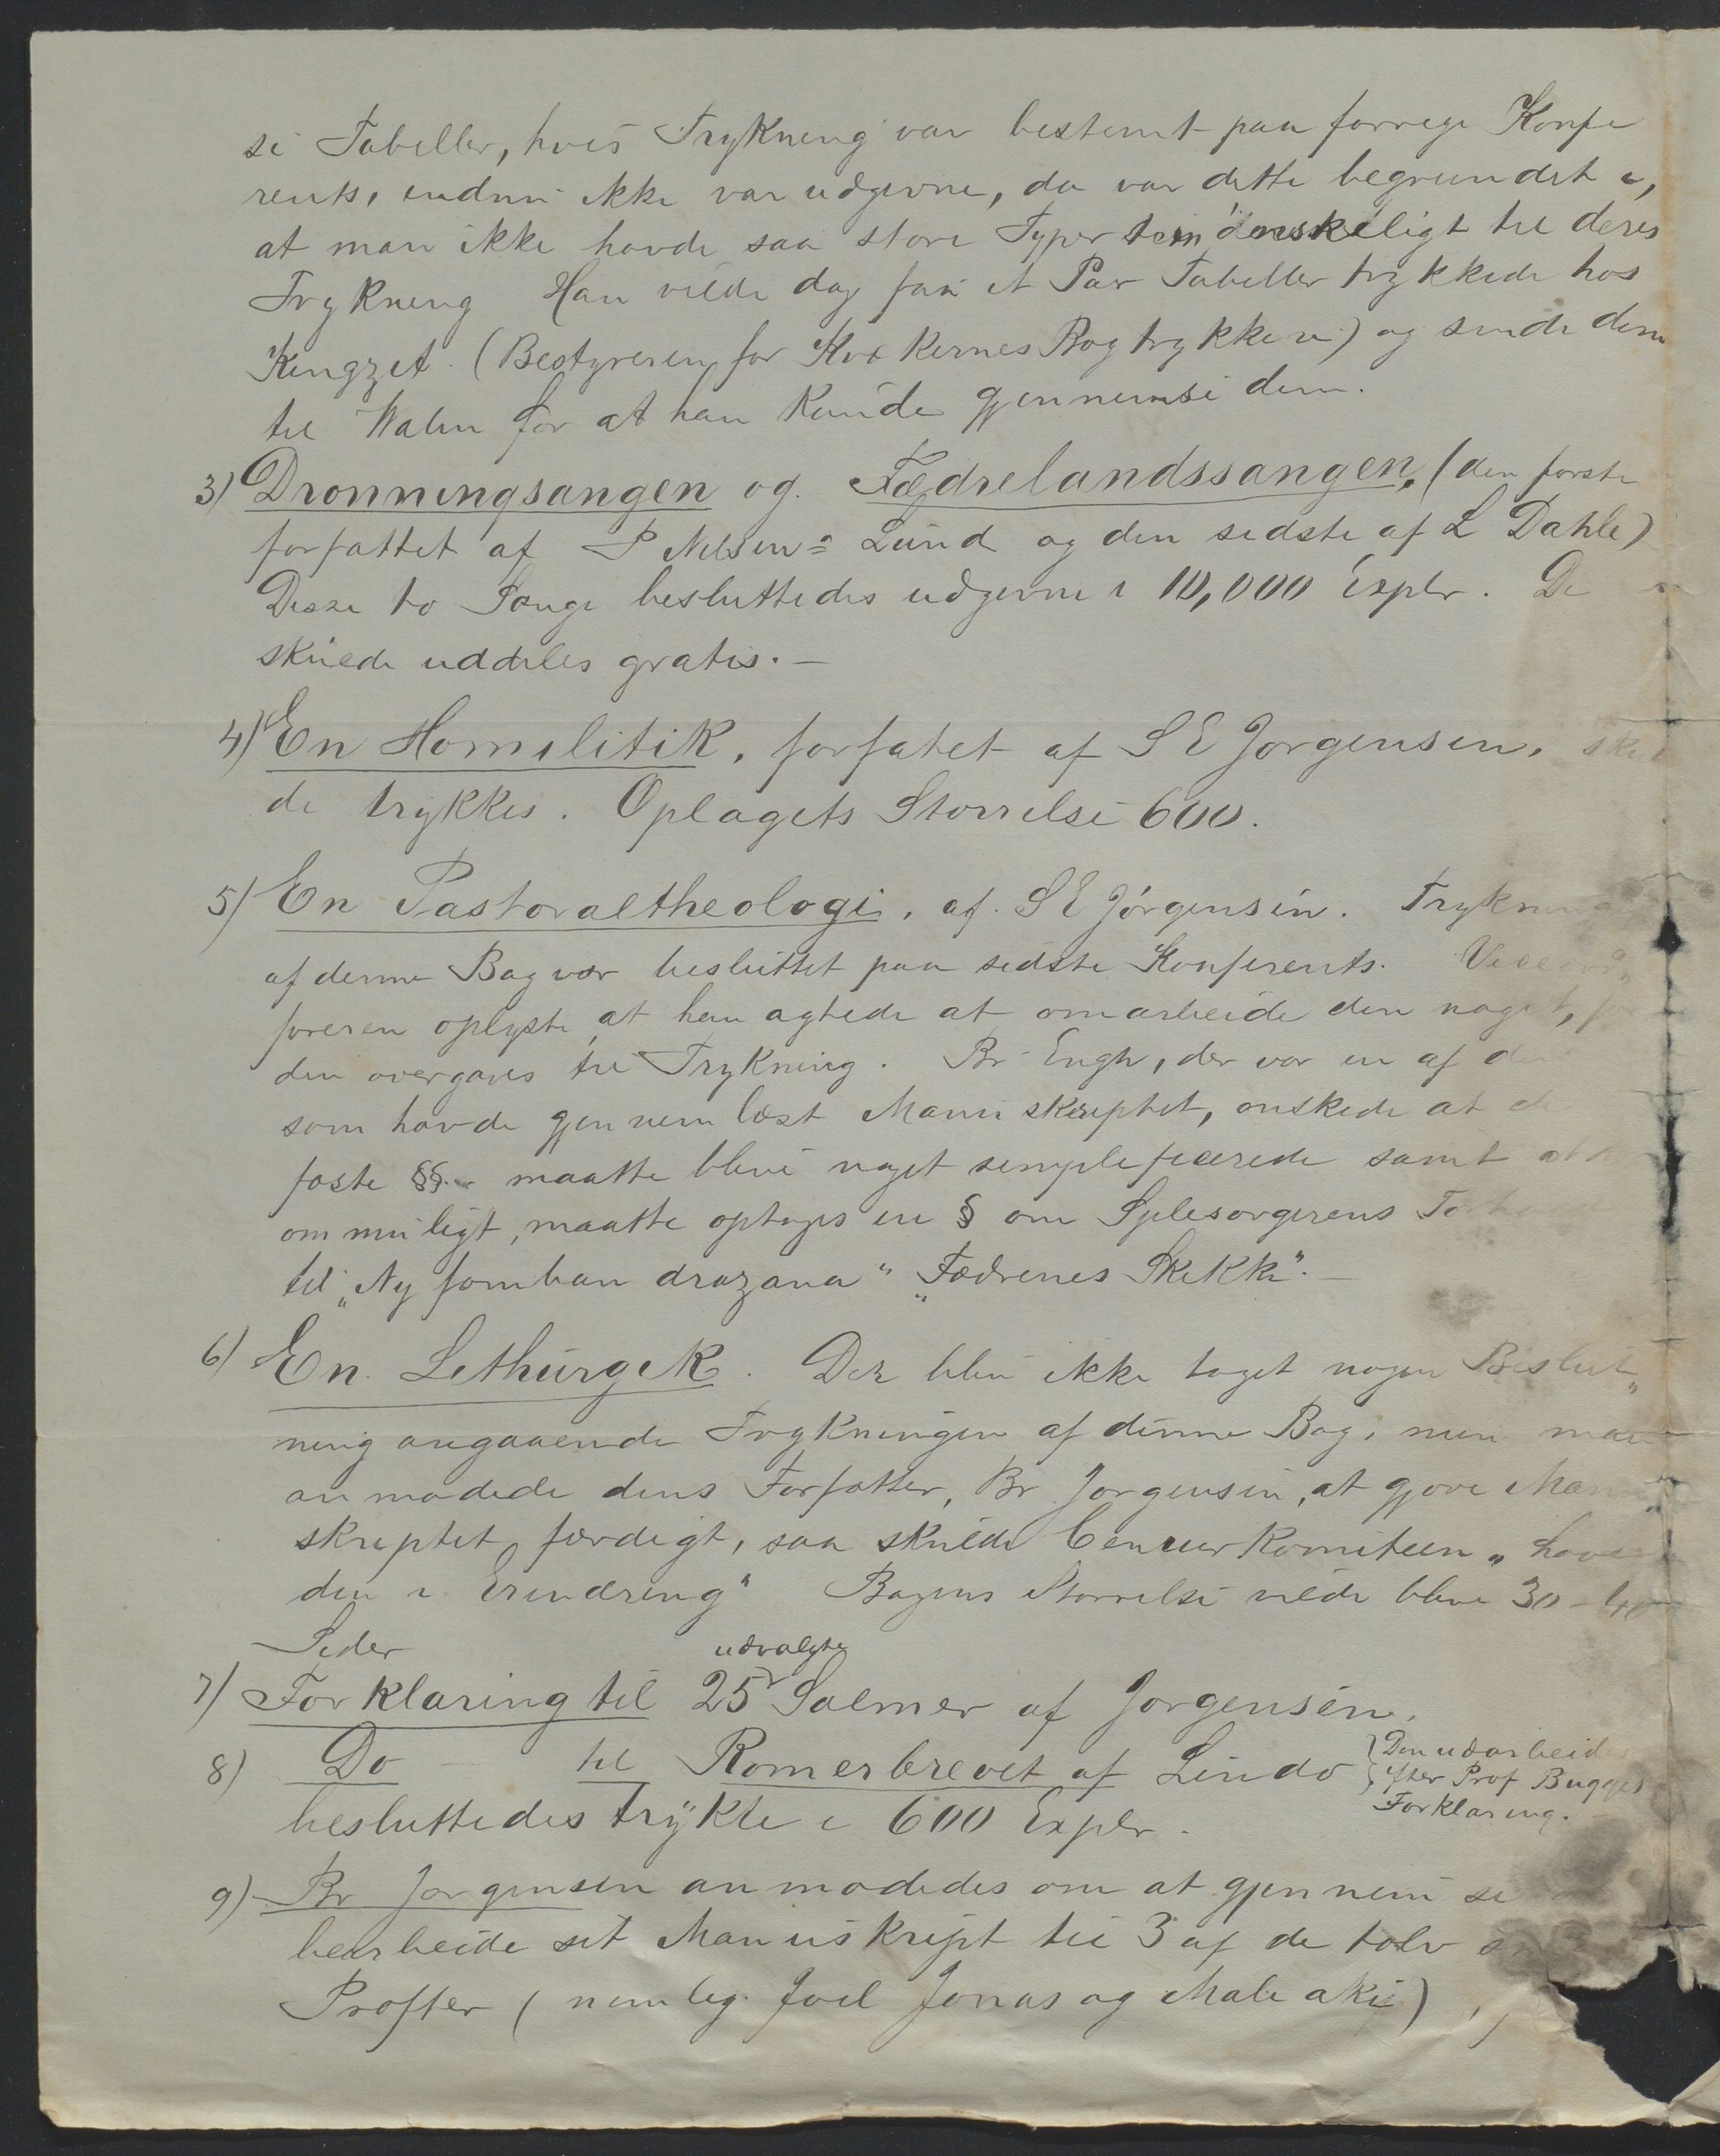 se Tabeller, hvis Trykning var bestemt paa forrige Konfe
rents, endnu ikke var udgivne, da var dette begrundet i,
at man ikke havde saa store Typer som ønskeligt til deres
Trykning Han vilde dog faa et Par Tabeller trykkede hos
Kingzet. (Bestyreren for Kvækernes Bogtrykkeri) og sende dem
til Walen for at han kunde gjennemse dem.
3) Dronningsangen og Fædrelandssangen, (den første
forfattet af P Nilsen = Lund og den sidste af L Dahle)
Disse to Sange besluttedes udgivne i 10,000 Explr. De
skulde uddeles gratis. —
4) En Homilitik, forfatet af S E Jorgensen, skul
de trykkes. Oplagets Størrelse 600.
5) En Pastoraltheologi, af S E Jörgensen. Trykning
af denne Bog var besluttet paa sidste Konferents.
føreren oplyste, at han agtede at omarbeide den noget, før
den overgaves til Trykning. Br Engh, der var en af dem
som havde gjennemlæst Manuskriptet, onskede at de
første §§ maatte blive noget simplificerede samt at d
om muligt, maatte optages en § om Sjelesorgerens Forhold
til „Ny fomban drazana“ „Fædrenes Skikke“. —
6) En Lithurgik. Der blev ikke taget nogen Beslut„
ning angaaende Trykningen af denne Bog, men man
anmodede dens Forfatter, Br Jorgensen, at gjøre Manu„
skriptet færdigt, saa skulde Censurkomiteen „have
den i Erindring“ Bogens Størrelse vilde blive 30–40
Sider
7) Forklaring til 25 udvalgte Salmer af Jorgensen.
8) Do — til Romerbrevet af Lindo {Den udarbeid
efter Prof Bugges
Forklaring.
besluttedes trykte i 600 Explr.
9) Br Jorgensen anmodedes om at gjennemse
bearbeide sit Manuskript til 3 af de tolv
Profter (nemlig Joel Jonas og Maleaki),